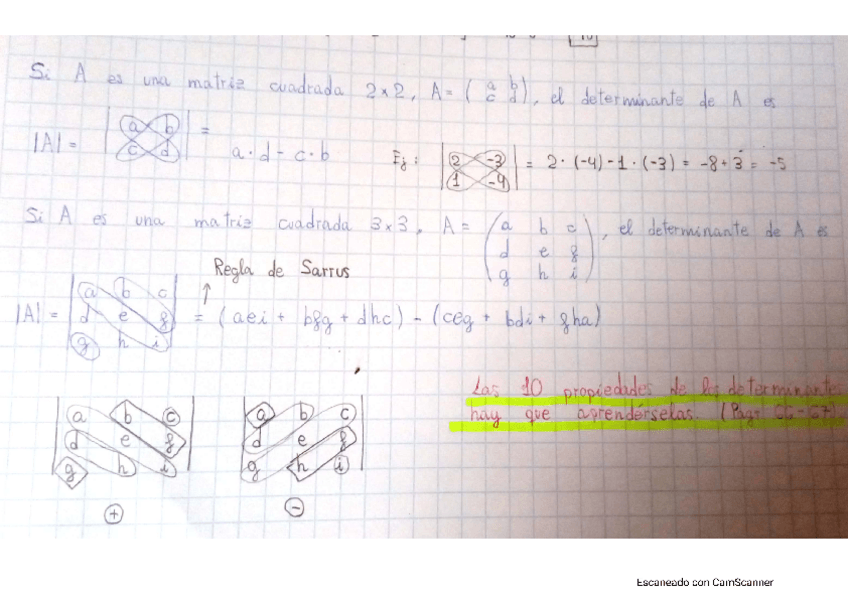 Si A es una matriz cuadrada 2×2, A = ( a b
c d ), el determinante de A es
|A| = | a b
c d | = a·d - c·b
Ej: | 2 -3
1 -4 | = 2·(-4) - 1·(-3) = -8 + 3 = -5
Si A es una matriz cuadrada 3×3, A = ( a b c
d e f
g h i ), el determinante de A es
Regla de Sarrus
|A| = | a b c
d e f
g h i | = (aei + bfg + dhc) - (ceg + bdi + fha)
Las 10 propiedades de los determinantes
hay que aprendérselas. (Pág. 66-67).
a b c
d e f
g h i
+
a b c
d e f
g h i
-
Escaneado con CamScanner